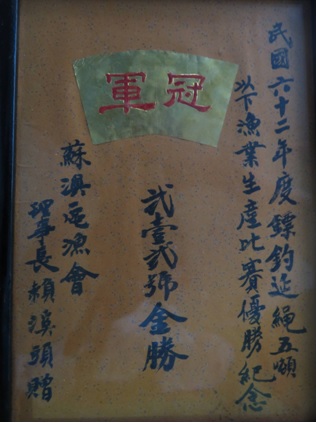 冠軍
民國六十二年度鏢釣延繩五順
以下漁業生產比賽優勝紀念
弍壹弍號金勝
蘇澳區漁會
理事長賴溪頭贈